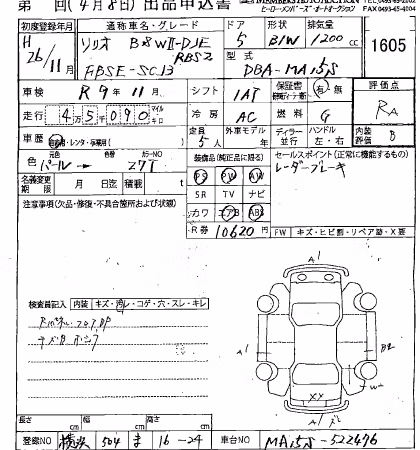 第 回(4月8日) 出品申込書
ヒーローメンバーズ・オートオークション FAX0493-45-4104
初度登録年月 通称車名・グレード ドア 形状 排気量
H 26/11月 ソリオ 5 B/W 1200 cc 1605
RBS2
型式
DBA-MA15S
車検 R 9年 11月 シフト 1AT 保証書 有・無 評価点
走行 4万5千090 マイル キロ 冷房 AC 燃料 G RA
定員 外車モデル ディーラー ハンドル 内装評価
車歴 自家用・レンタ・事業用( ) 5人 年 並行 左・右 B
元色 色替 カラーNO
色 パール → Z7T
装備品(純正品に限る) セールスポイント(正常に機能するもの)
名義変更期限 月 日迄 積載 t
PS PW AW レーダーブレーキ
SR TV ナビ
注意事項(欠品・修復・不具合箇所および状態) カワ エアB ABS
R券 10620円 FW キズ・ヒビ割・リペア跡・X要
検査員記入 内装 キズ・汚レ・コゲ・穴・スレ・キレ
A1
A1
B2
W
XX
長さ cm 幅 cm 高さ cm
登録NO 横浜 504 ま 16-24 車台NO MA15S-522476